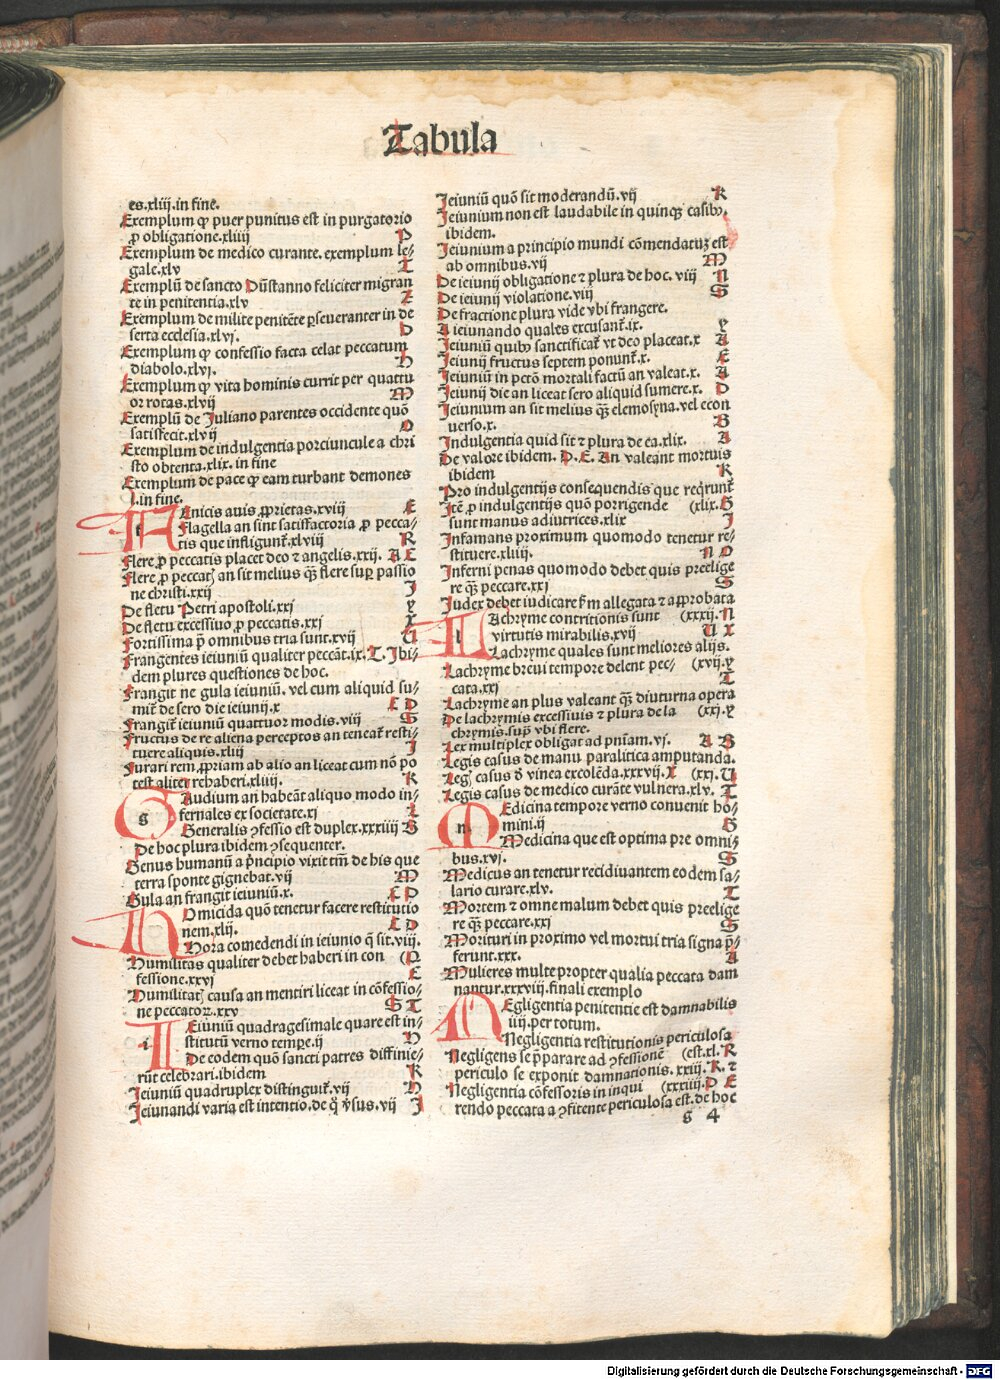 Tabula
es.xliij.in fine.
Exemplum ꝙ puer punitus est in purgatorio
ꝓ obligatione.xliiij P
Exemplum de medico curante. exemplum le⸗
gale.xlv T
Exemplū de sancto Dūstanno feliciter migran
te in penitentia.xlv Z
Exemplum de milite penitēte ꝑseueranter in de
serta ecclesia.xlvj. D
Exemplum ꝙ confessio facta celat peccatum
diabolo.xlvj. H
Exemplum ꝙ vita hominis currit per quattu
or rotas.xlvij M
Exemplū de Juliano parentes occidente quō
satisfecit.xlvij O
Exemplum de indulgentia porciuncule a chri
sto obtenta.xlix. in fine
Exemplum de pace ꝙ eam turbant demones
l.in fine.
f Enicis auis ꝓprietas.xviij E
Flagella an sint satisfactoria ꝓ pecca⸗
tis que infligunt̄.xlviij R
Flere ꝓ peccatis placet deo ⁊ angelis.xxij. A E
Flere ꝓ peccatꝭ an sit melius qꝫ flere suꝑ passio
ne christi.xxij J
De fletu Petri apostoli.xxj Y
De fletu excessiuo ꝓ peccatis.xxj X
Fortissima p̄ omnibus tria sunt.xvij U
Frangentes ieiuniū qualiter peccāt.ix. T. Jbi⸗
dem plures questiones de hoc.
Frangit ne gula ieiuniū. vel cum aliquid su⸗
mit̄ de sero die ieiunij.x E D
Frangit̄ ieiuniū quattuor modis.viij S
Fructus de re aliena perceptos an teneat̄ resti⸗
tuere aliquis.xliij J
Furari rem ꝓpriam ab alio an liceat cum nō po
test aliter rehaberi.xliiij. K
g Gaudium an habeāt aliquo modo in⸗
fernales ex societate.xj L
Generalis ꝯfessio est duplex.xxxiiij B
De hoc plura ibidem ꝯsequenter.
Genus humanū a p̄ncipio vixit tm̄ de his que
terra sponte gignebat.vij M
Gula an frangit ieiuniū.x. E D
Homicida quō tenetur facere restitutio
nem.xlij. C D
Hora comedendi in ieiunio q̄ sit.viij.
Humilitas qualiter debet haberi in con (Q
fessione.xxvj E
Humilitatꝭ causa an mentiri liceat in cōfessio⸗
ne peccatoꝝ.xxv S T
i Jeiuniū quadragesimale quare est in⸗
stitutū verno tempore.ij H
De eodem quō sancti patres diffinie⸗
rūt celebrari.ibidem K
Jeiuniū quadruplex distinguit̄.vij H
Jeiunandi varia est intentio.de q̊ v̊sus.vij J
Jeiuniū quō sit moderandū.vij K
Jeiunium non est laudabile in quinqꝫ casibꝰ.
ibidem.
Jeiunium a principio mundi cōmendatuꝫ est
ab omnibus.vij M
De ieiunij obligatione ⁊ plura de hoc. viij N
De ieiunij violatione.viij S
De fractione plura vide vbi frangere.
A ieiunando quales excusant̄.ix. Y
Jeiuniū quibꝰ sanctificat̄ vt deo placeat.x A
Jeiunij fructus septem ponunt̄.x. E
Jeiuniū in pctō mortali factū an valeat.x. A
Jeiunij die an liceat sero aliquid sumere.x. D
Jeiunium an sit melius qꝫ elemosyna.vel econ
uerso.x. B
Indulgentia quid sit ⁊ plura de ea.xlix. A
De valore ibidem. D. E. An valeant mortuis
ibidem K
Pro indulgentijs consequendis que reqrunt̄
Itē ꝓ indulgentijs quō porrigende (xlix.G
sunt manus adiutrices.xlix J
Infamans proximum quomodo tenetur re⸗
stituere.xliiij. N O
Inferni penas quomodo debet quis preelige
re qꝫ peccare.xxj S
Judex debet iudicare ẜm allegata ⁊ aꝓprobata
l Lachryme contritionis sunt (xxxij. N
virtutis mirabilis.xvij U X
Lachryme quales sunt meliores alijs.
Lachryme breui tempore delent pec⸗ (xvij.Y
cata.xxj T
Lachryme an plus valeant qꝫ diuturna opera
De lachrymis excessiuis ⁊ plura de la (xxj.Y
chrymis.supͣ vbi flere.
Lex multiplex obligat ad pn̄iam.vj. A B
Legis casus de manu paralitica amputanda.
Legꝭ casus ď vinea excolēda.xxxvij. X (xxj.U
Legis casus de medico curāte vulnera.xlv. T
m Medicina tempore verno conuenit ho⸗
mini.ij G
Medicina que est optima pre omni⸗
bus.xvj. S
Medicus an tenetur recidiuantem eodem sa⸗
lario curare.xlv. T
Mortem ⁊ omne malum debet quis preelige
re qꝫ peccare.xxj S
Morituri in proximo vel mortui tria signa p̄⸗
ferunt.xxx. A
Mulieres multe propter qualia peccata dam
nantur.xxxviij.finali exemplo
Negligentia penitentie est damnabilis
iiij.per totum.
Negligentia restitutionis periculosa
Negligens se p̄parare ad ꝯfessionē (est.xl. R
periculo se exponit damnationis. xxiij. K. ⁊
Negligentia cōfessoris in inqui (xxxiij.D E
rendo peccata a ꝯfitente periculosa est.de hoc
g 4
Digitalisierung gefördert durch die Deutsche Forschungsgemeinschaft - DFG